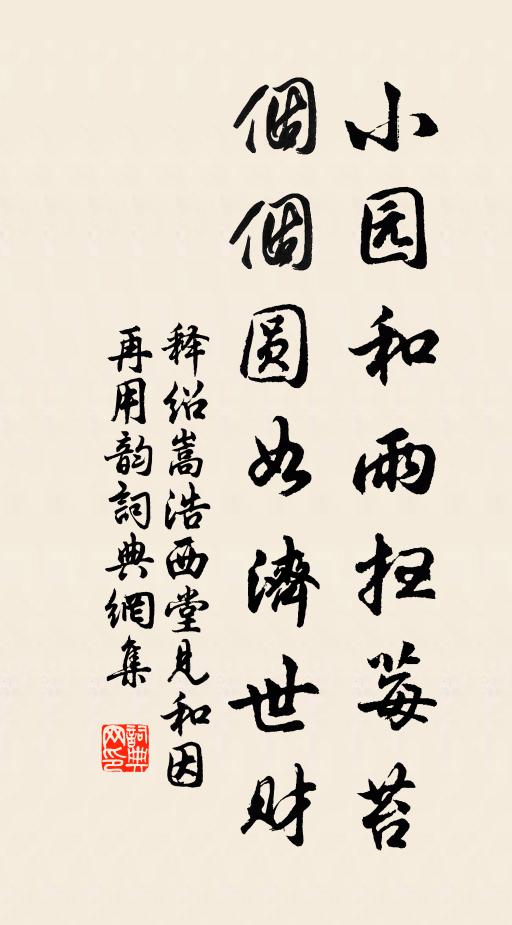 小园和雨扫莓苔
個個圆如濟世财
释绍嵩浩西堂見和因
再用韵詞典網集
詞典网印